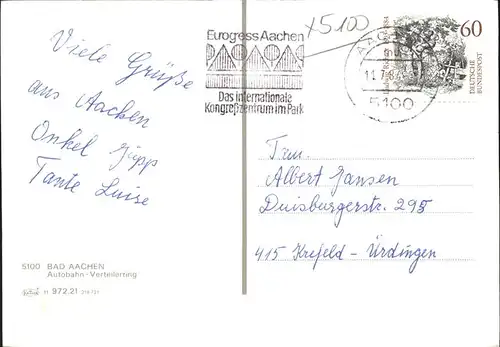 Viele Grüße
aus Aachen
Onkel Jupp
Tante Luise
5100 BAD AACHEN
Autobahn-Verteilerring
11 972.21
x5100
Eurogress Aachen
Das internationale
Kongreßzentrum im Park
AACHEN
5100
60
DEUTSCHE
BUNDESPOST
Albert Jansen
Duisburgerstr. 295
415 Krefeld-Ürdingen